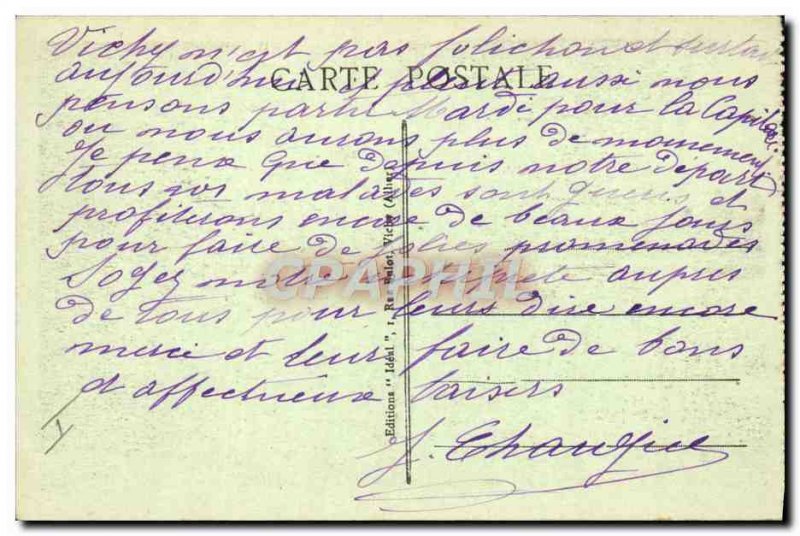 CARTE POSTALE
Vichy n'est pas folichon et surtout
aujourd'hui il pleut aussi nous
pensons partir Mardi pour la Capitale
ou nous aurons plus de mouvement
Je pense que depuis notre départ
tous vos malades sont gueris et
profiterons encore de beaux jours
pour faire de jolies promenades
Soyez notre interprete aupres
de tous pour leurs dire encore
merci et leur faire de bons
et affectueux baisers
J.
Editions "Idéal", 1, Rue Balot, Vichy (Allier)
CPAPHIL
I